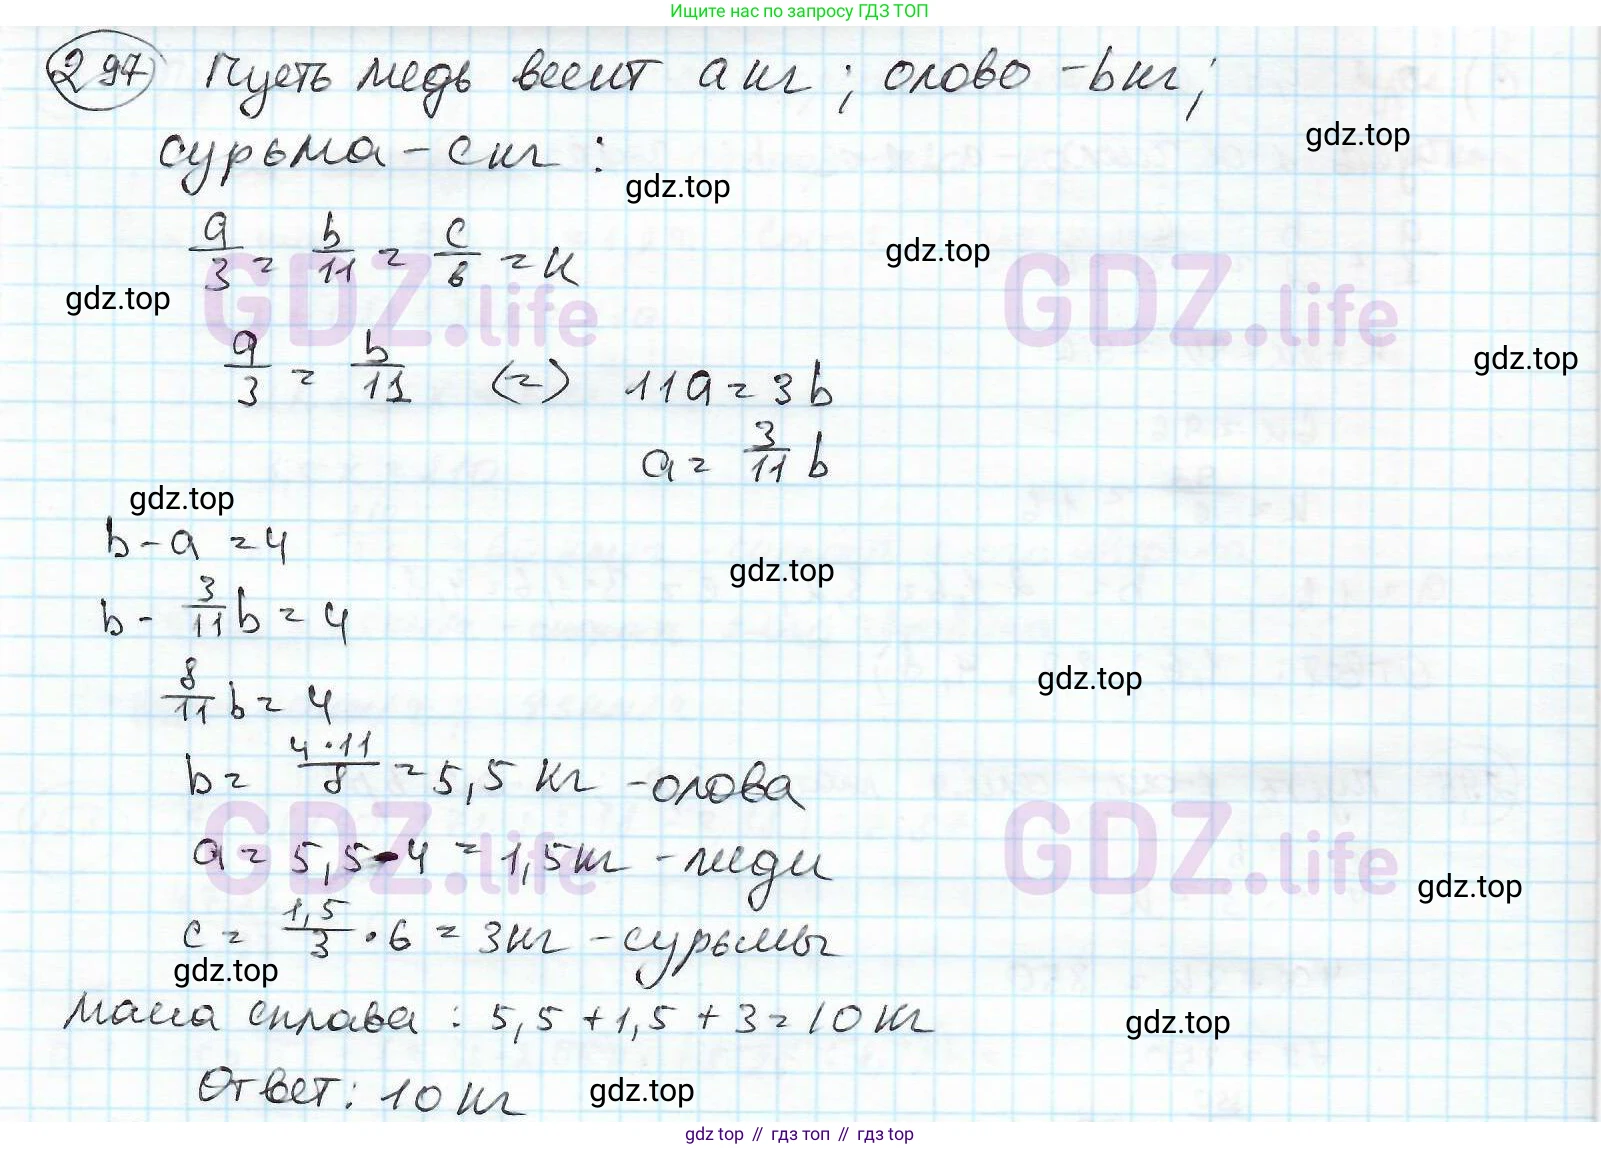 Ищите нас по запросу ГДЗ ТОП
297 Пусть медь весит a кг; олово - b кг;
gdz.top
сурьма - c кг:
gdz.top
a/3 = b/11 = c/6 = к
gdz.top
gdz.top
GDZ.life GDZ.life
a/3 = b/11 (=) 11a = 3b
gdz.top
a = 3/11 b
gdz.top
b - a = 4
gdz.top
b - 3/11 b = 4
8/11 b = 4
gdz.top
b = 4·11/8 = 5,5 кг - олова
GDZ.life GDZ.life
a = 5,5 - 4 = 1,5 кг - меди
gdz.top
c = 1,5/3 · 6 = 3 кг - сурьмы
gdz.top
Масса сплава: 5,5 + 1,5 + 3 = 10 кг
gdz.top
Ответ: 10 кг
gdz.top
gdz top // гдз топ // gdz top